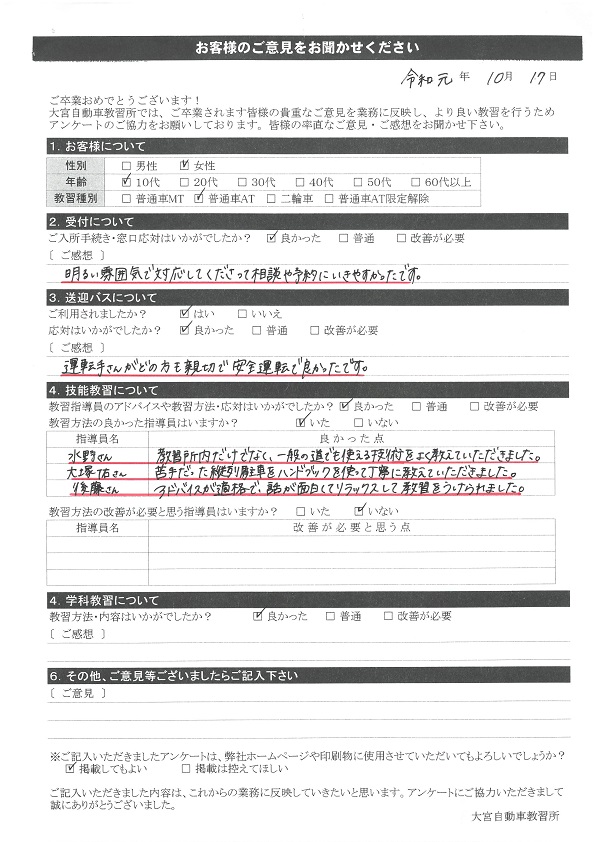 お客様のご意見をお聞かせください
令和元年 10月 17日
ご卒業おめでとうございます！
大宮自動車教習所では、ご卒業されます皆様の貴重なご意見を業務に反映し、より良い教習を行うため
アンケートのご協力をお願いしております。皆様の率直なご意見・ご感想をお聞かせ下さい。
1. お客様について
性別 □ 男性 ☑ 女性
年齢 ☑ 10代 □ 20代 □ 30代 □ 40代 □ 50代 □ 60代以上
教習種別 □ 普通車MT ☑ 普通車AT □ 二輪車 □ 普通車AT限定解除
2. 受付について
ご入所手続き・窓口応対はいかがでしたか？ ☑ 良かった □ 普通 □ 改善が必要
〔 ご感想 〕
明るい雰囲気で対応してくださって相談や予約にいきやすかったです。
3. 送迎バスについて
ご利用されましたか？ ☑ はい □ いいえ
応対はいかがでしたか？ ☑ 良かった □ 普通 □ 改善が必要
〔 ご感想 〕
運転手さんがどの方も親切で安全運転で良かったです。
4. 技能教習について
教習指導員のアドバイスや教習方法・応対はいかがでしたか？ ☑ 良かった □ 普通 □ 改善が必要
教習方法の良かった指導員はいますか？ ☑ いた □ いない
指導員名 良かった点
水野さん 教習所内だけでなく、一般の道でも使える技術をよく教えていただきました。
大塚佑さん 苦手だった縦列駐車をハンドブックを使って丁寧に教えていただきました。
後藤さん アドバイスが適格で、話が面白くてリラックスして教習をうけられました。
教習方法の改善が必要と思う指導員はいますか？ □ いた ☑ いない
指導員名 改善が必要と思う点
4. 学科教習について
教習方法・内容はいかがでしたか？ ☑ 良かった □ 普通 □ 改善が必要
〔 ご感想 〕
6. その他、ご意見等ございましたらご記入下さい
〔 ご意見 〕
※ご記入いただきましたアンケートは、弊社ホームページや印刷物に使用させていただいてもよろしいでしょうか？
☑ 掲載してもよい □ 掲載は控えてほしい
ご記入いただきました内容は、これからの業務に反映していきたいと思います。アンケートにご協力いただきまして
誠にありがとうございました。
大宮自動車教習所